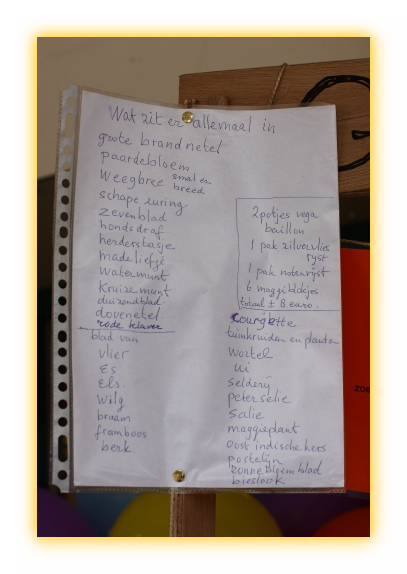 Wat zit er allemaal in
grote brandnetel
paardebloem
weegbree smal en
breed
schapezuring
zevenblad
hondsdraf
herderstasje
madeliefje
watermunt
kruizemunt
duizendblad
dovenetel
rode klaver
blad van
vlier
Es
Els
Wilg
braam
framboos
berk
2 potjes vega
baillon
1 pak zilvervlies
ryst
1 pak notenrijst
6 maggi blokjes
totaal ± 8 euro.
courgette
tuinkruiden en planten
wortel
ui
selderij
peterselie
salie
maggieplant
oost indische kers
postelijn
zonnebloem blad
bieslook